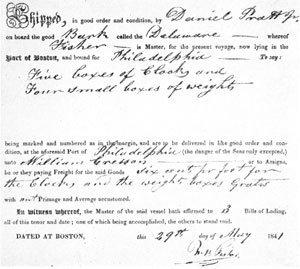 Shipped, in good order and condition, by Daniel Pratt Jr.
on board the good Bark called the Delaware — whereof
Fisher — is Master, for the present voyage, now lying in the
Port of Boston, and bound for Philadelphia — To say:
Five boxes of Clocks and
Four small boxes of weights
being marked and numbered as in the margin, and are to be delivered in like good order and con-
dition, at the aforesaid Port of Philadelphia (the danger of the Seas only excepted,)
unto William Cresson — or to Assigns,
he or they paying Freight for the said Goods Six cents pr foot for
the Clocks, and the weight boxes Gratis
with out Primage and Average accustomed.
In witness whereof, the Master of the said vessel hath affirmed to 3 Bills of Lading,
all of this tenor and date; one of which being accomplished, the others to stand void.
DATED AT BOSTON, this 29th day of May 1841